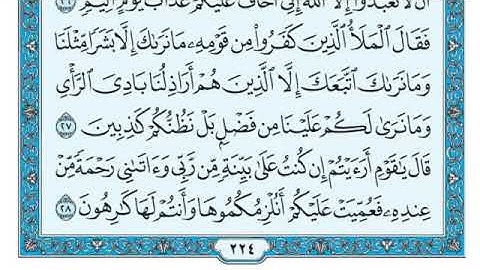 أَن لَّا تَعْبُدُوٓا۟ إِلَّا ٱللَّهَ إِنِّىٓ أَخَافُ عَلَيْكُمْ عَذَابَ يَوْمٍ أَلِيمٍ ٢٦
فَقَالَ ٱلْمَلَأُ ٱلَّذِينَ كَفَرُوا۟ مِن قَوْمِهِۦ مَا نَرَىٰكَ إِلَّا بَشَرًا مِّثْلَنَا
وَمَا نَرَىٰكَ ٱتَّبَعَكَ إِلَّا ٱلَّذِينَ هُمْ أَرَاذِلُنَا بَادِىَ ٱلرَّأْىِ
وَمَا نَرَىٰ لَكُمْ عَلَيْنَا مِن فَضْلٍۭ بَلْ نَظُنُّكُمْ كَـٰذِبِينَ ٢٧
قَالَ يَـٰقَوْمِ أَرَءَيْتُمْ إِن كُنتُ عَلَىٰ بَيِّنَةٍ مِّن رَّبِّى وَءَاتَىٰنِى رَحْمَةً مِّنْ
عِندِهِۦ فَعُمِّيَتْ عَلَيْكُمْ أَنُلْزِمُكُمُوهَا وَأَنتُمْ لَهَا كَـٰرِهُونَ ٢٨
٢٢٤